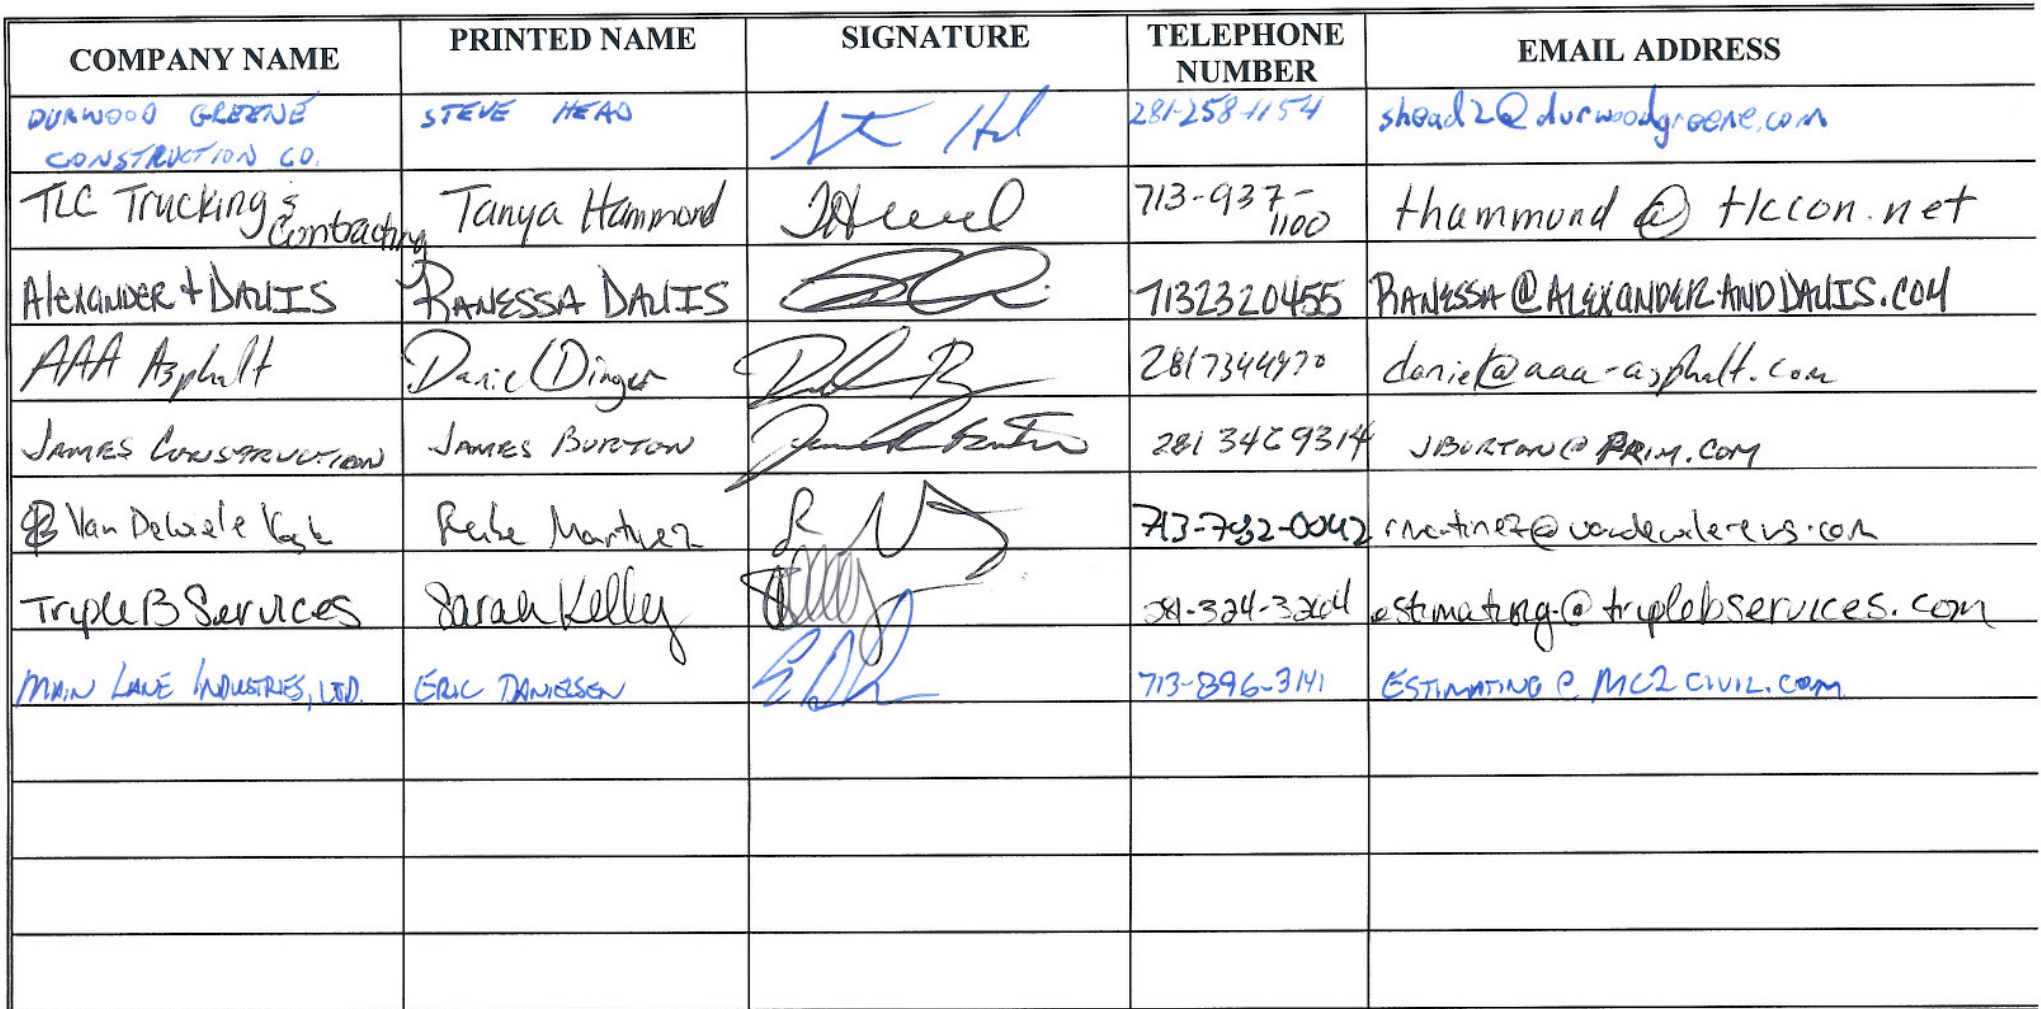 COMPANY NAME PRINTED NAME SIGNATURE TELEPHONE NUMBER EMAIL ADDRESS
DURWOOD GREENE CONSTRUCTION CO. STEVE HEAD 281-258-1154 shead2@durwoodgreene.com
TLC Trucking & Contracting Tanya Hammond 713-937-1100 thammond@tlccon.net
ALEXANDER + DAVIS RANESSA DAVIS 7132320455 RANESSA@ALEXANDERANDDAVIS.COM
AAA Asphalt Daniel Dinger 2817344970 daniel@aaa-asphalt.com
JAMES CONSTRUCTION JAMES BURTON 281 3429314 JBURTON@PRIM.COM
Van DeWiele Martinez 713-782-0042
Triple B Services Sarah Kelly 281-324-3264 estimating@triplebservices.com
MAIN LANE INDUSTRIES, LTD. ERIC DANIELSEN 713-896-3141 ESTIMATING@MC2CIVIL.COM